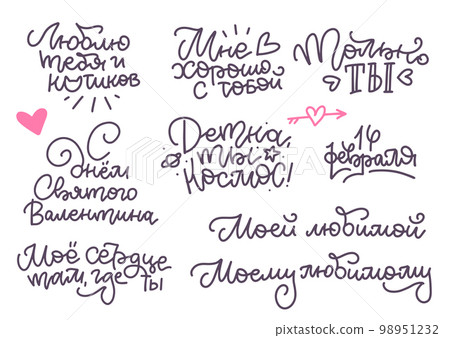 Люблю
тебя и
котиков
Мне
хорошо
с тобой
Только
ТЫ
С
днём
Святого
Валентина
Детка,
ты
Космос!
14
февраля
Моей любимой
Моё сердце
там, где ты
Моему любимому
PIXTA
98951232